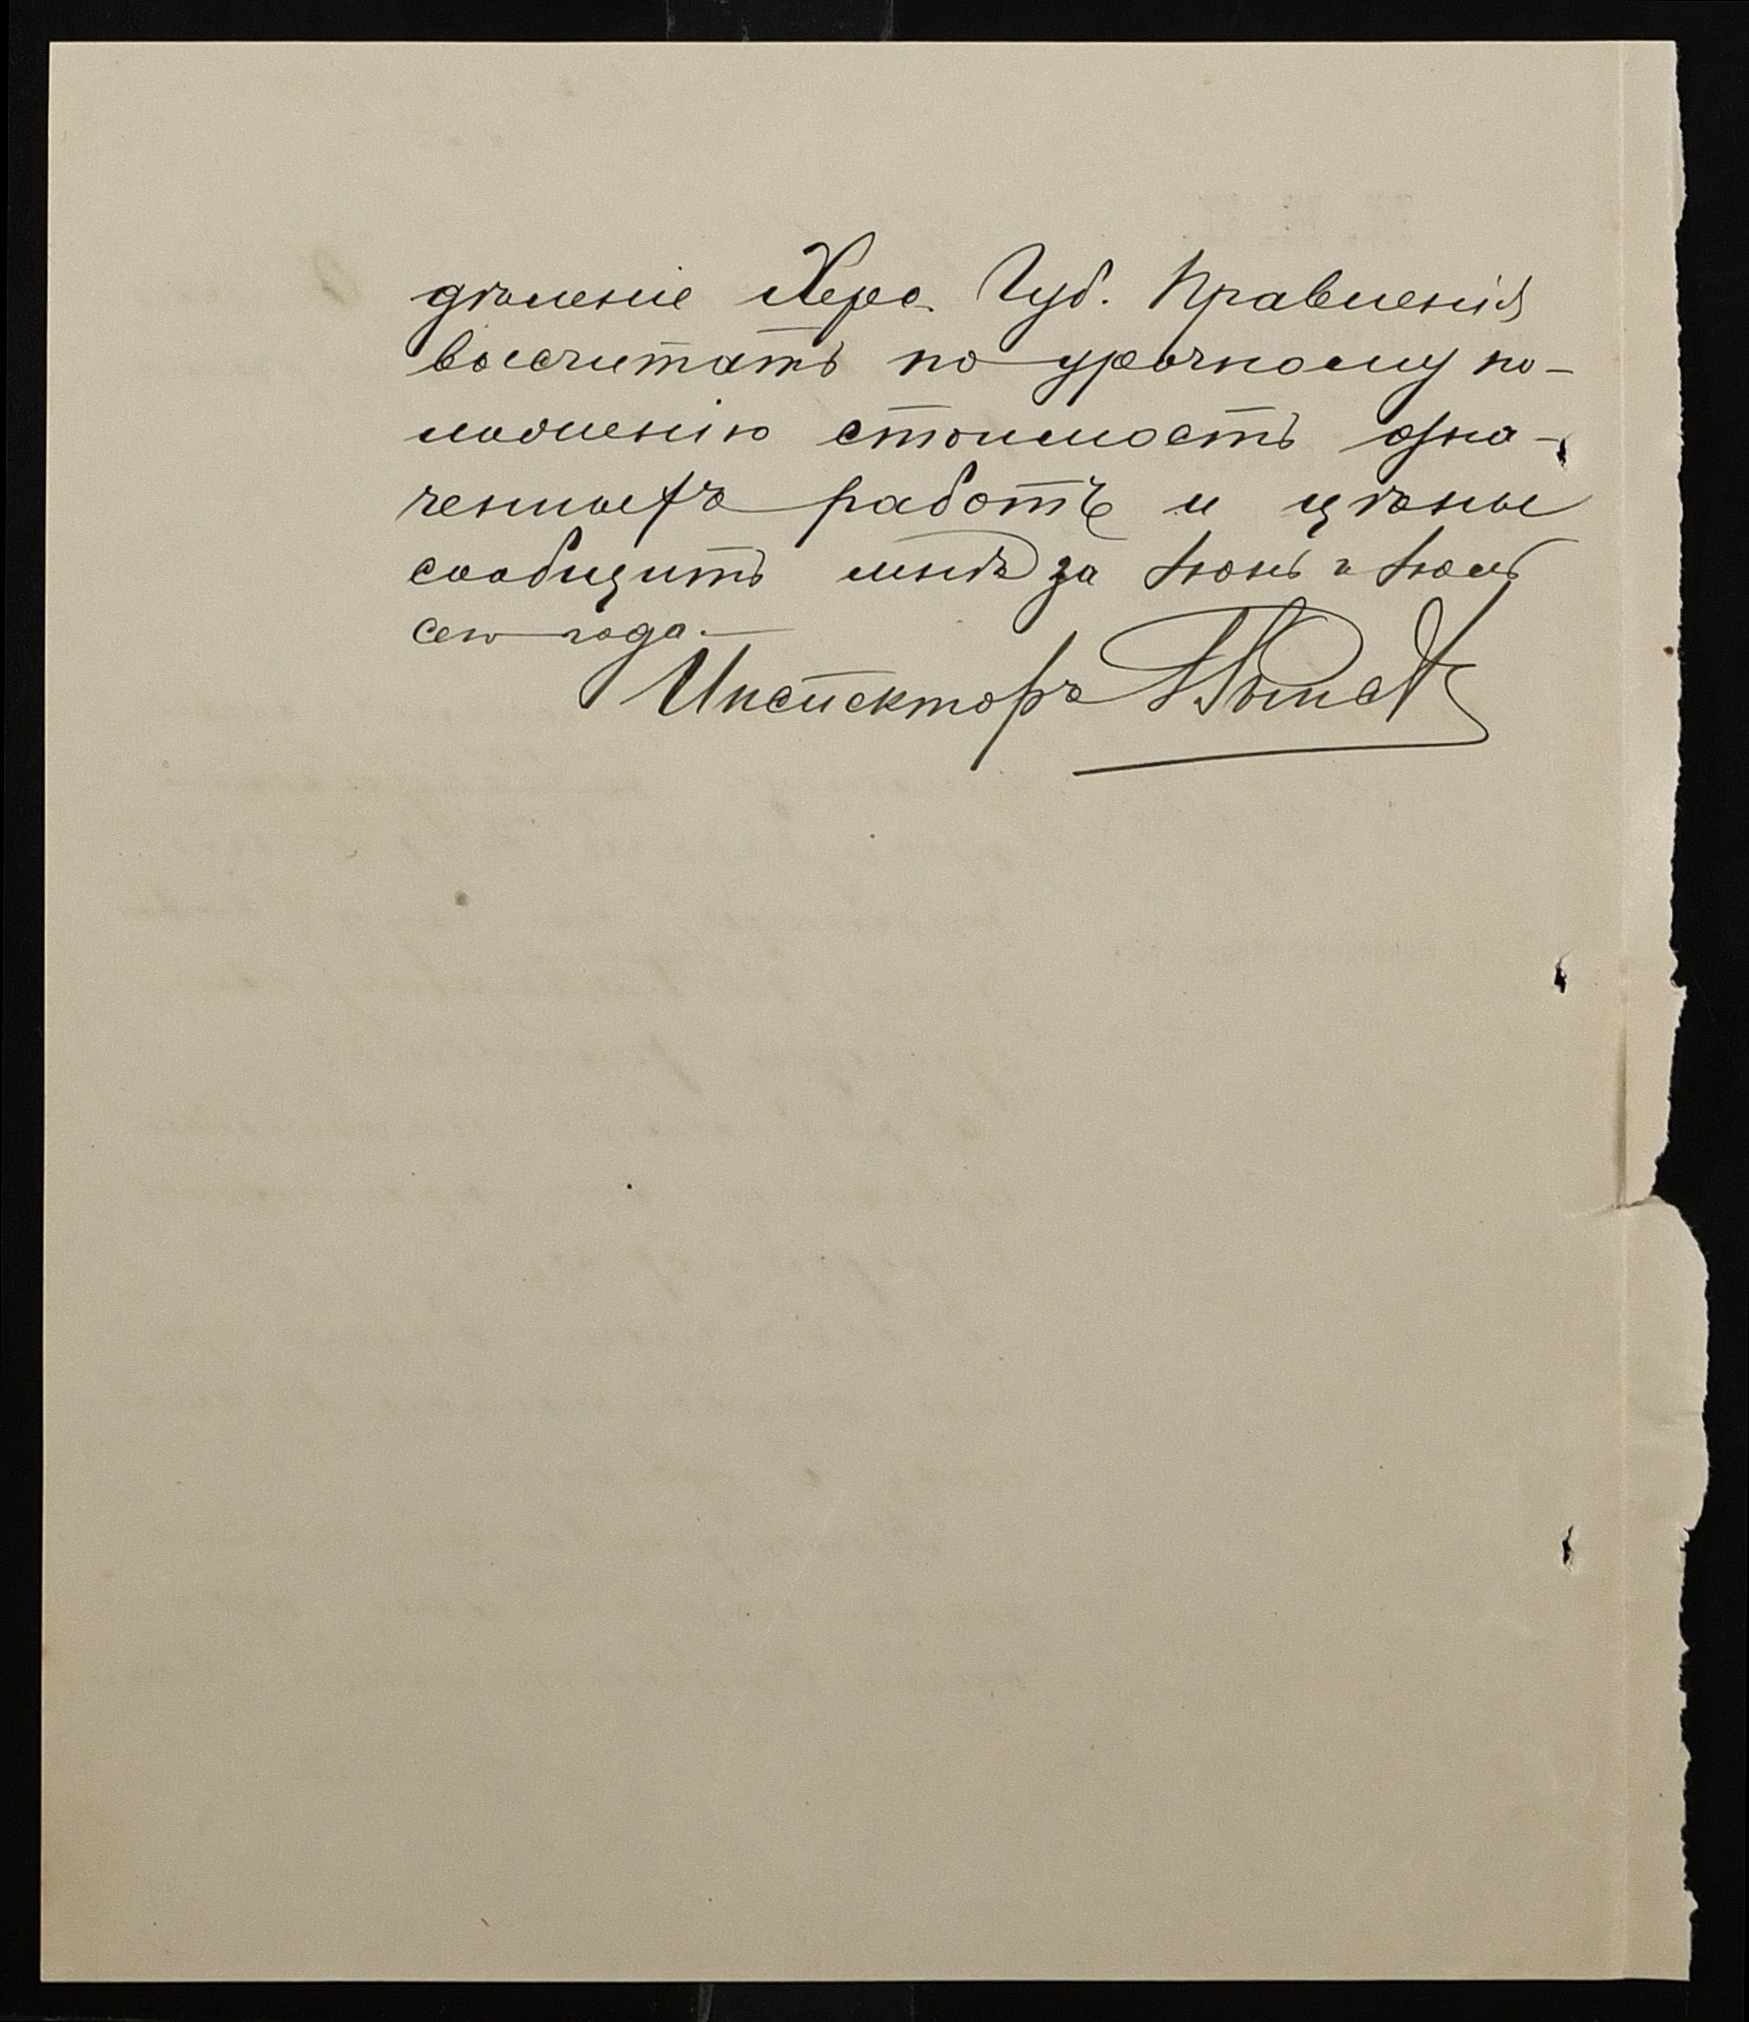 дѣленіе Херс. Губ. Правленія
восчитать по урочному по-
ложенію стоимость озна-
ченныхъ работъ и цѣны
сообщить мнѣ за Іюнь и Іюль
сего года.
Инспекторъ